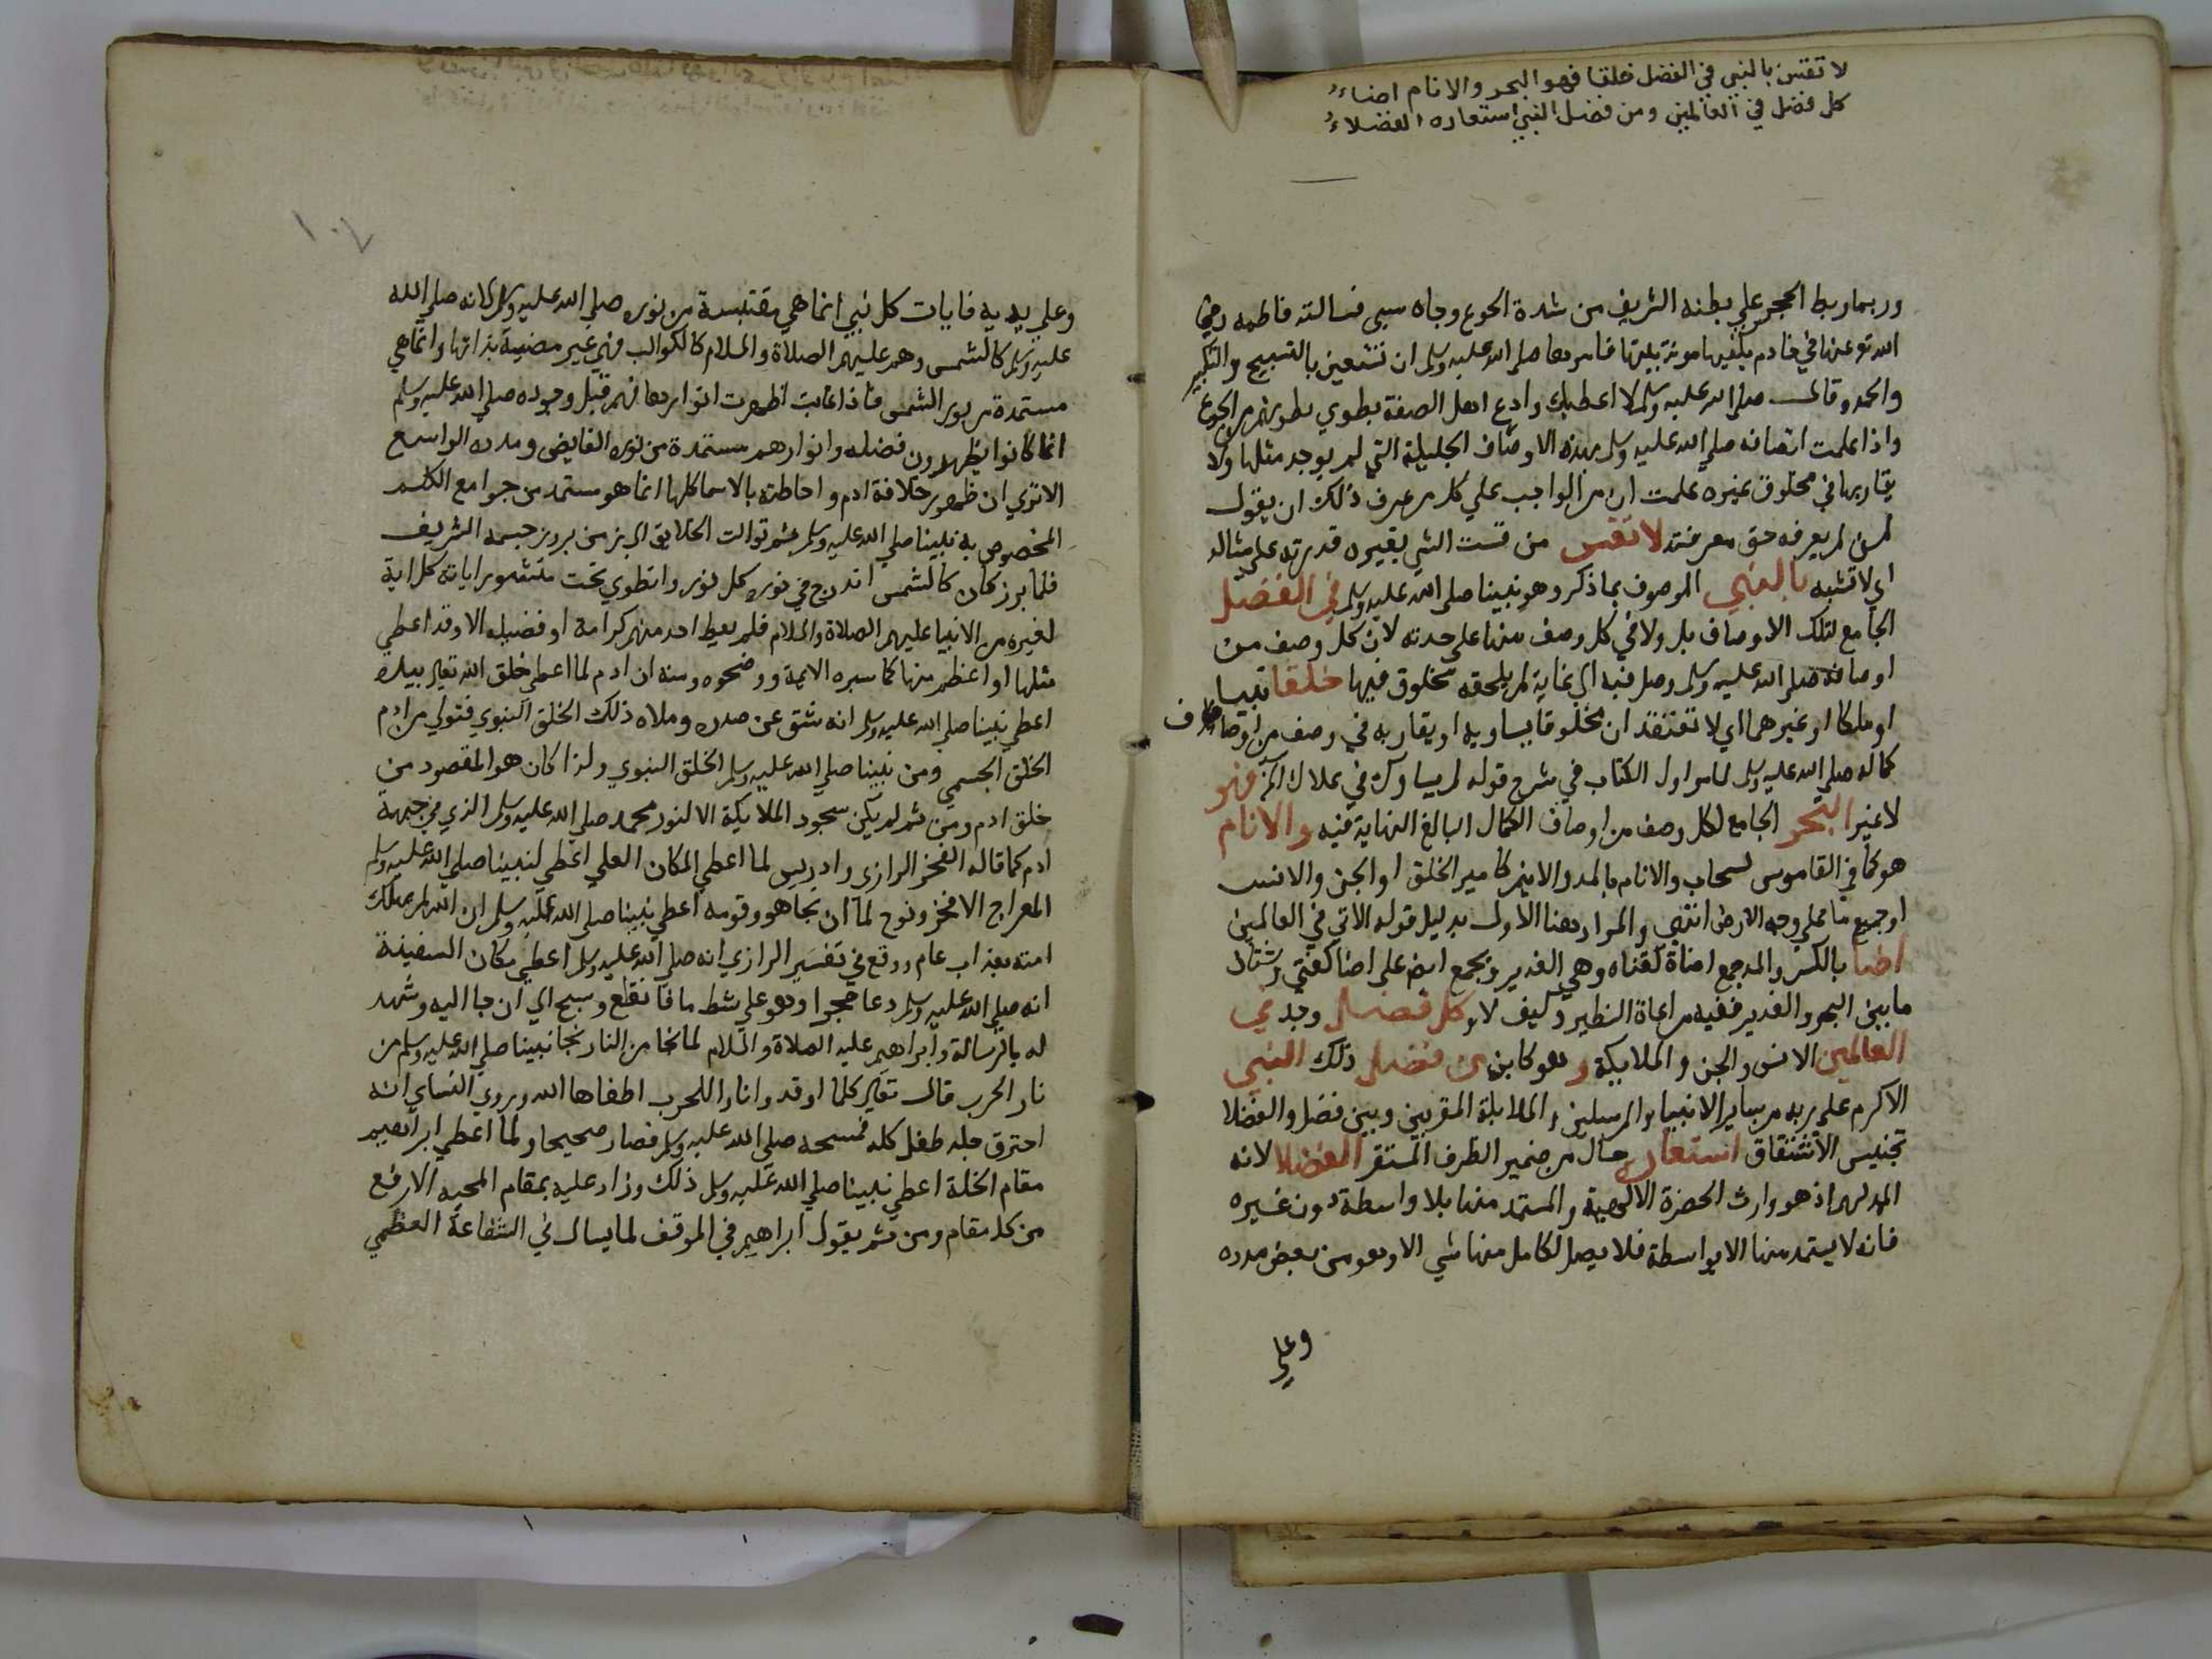 لا تقس بالنبي في الفضل خلقا فهو البحر والانام اضاء
كل فضل في العالمين ومن فضل النبي استعاره الفضلاء
وربما ربط الحجر علي بطنه الشريف من شدة الجوع وجاه سبي فسالته فاطمه رضي
الله تع عنها في خادم يكفيها مونة بيتها فامرها صلى الله عليه وسلم ان تستعين بالتسبيح والتكبير
والحمد وقال صلى الله عليه وسلم لا اعطيك وادع اهل الصفة يطوي بطونهم من الجوع
واذا علمت اتصافه صلي الله عليه وسلم بهذه الاوصاف الجليلة التي لم يوجد مثلها ولا
يقاربها في مخلوق غيره علمت ان من الواجب علي كل من عرف ذلك ان يقول
لمن لم يعرفه حق معرفته لا تقس من قست الشي بغيره قدرته علي مثاله
اي لا تشبه بالنبي الموصوف بما ذكر وهو نبينا صلى الله عليه وسلم في الفضل
الجامع لتلك الاوصاف بل ولا في كل وصف منها على حدته لان كل وصف من
اوصافه صلى الله عليه وسلم وصل فيه الي غاية لم يلحقه مخلوق فيها خلقا نبيا
او ملكا او غيرهما اي لا تعتقد ان مخلوقا يساويه او يقاربه في وصف من اوصاف
كماله صلى الله عليه وسلم لما مر اول الكتاب في شرح قوله لم يساووك في علاك الخ فهو
لا غير البحر الجامع لكل وصف من اوصاف الكمال البالغ النهاية فيه والانام
هو كما في القاموس لسحاب والانام بالمد والانيم كامير الخلق او الجن والانس
او جميع ما علي وجه الارض انتهي والمراد هنا الاول بدليل قوله الاتي في العالمين
اضا بالكسر والمد جمع اضاة كقناه وهي الغدير ويجمع ايض على اضا كفتي وشتان
ما بين البحر والغدير ففيه مراعاة النظير وكيف لا و كل فضل وجد في
العالمين الانس والجن والملايكة و هو كاين من فضل ذلك النبي
الاكرم على ربه من ساير الانبيا والمرسلين والملايكة المقربين وبين فضل والفضلا
تجنيس الاشتقاق استعاره حال من ضمير الظرف المستقر الفضلا لانه
الممد لهم اذ هو وارث الحضرة الالهية والمستمد منها بلا واسطة دون غيره
فانه لا يستمد منها الا بواسطة فلا يصل لكامل منها شي الا وهو من بعض مدده
وعلي
١٠٧
وعلي يديه فايات كل نبي انما هي مقتبسة من نوره صلي الله عليه وسلم لانه صلي الله
عليه وسلم كالشمس وهم عليهم الصلاة والسلام كالكواكب فهي غير مضيية بذاتها وانما هي
مستمدة من نور الشمس فاذا غابت اظهرت انوارها فهم قبل وجوده صلي الله عليه وسلم
انما كانوا يظهرون فضله وانوارهم مستمدة من نوره الفايض ومدده الواسع
الا تري ان ظهور خلافة ادم واحاطته بالاسما كلها انما هو مستمد من جوامع الكلم
المخصوص به نبينا صلي الله عليه وسلم ثم توالت الخلايق الي زمن بروز جسمه الشريف
فلما برز كان كالشمس اندرج في نوره كل نور وانطوي تحت منشور اياته كل اية
لغيره من الانبيا عليهم الصلاة والسلام فلم يعط احد منهم كرامة او فضيله الا وقد اعطي
مثلها او اعظم منها كما سبره الايمة ووضحوه ومنه ان ادم لما اعطي خلق الله تعالي بيده
اعطي نبينا صلي الله عليه وسلم انه شق عن صدره وملاه ذلك الخلق النبوي فتولي من ادم
الخلق الجسمي ومن نبينا صلي الله عليه وسلم الخلق النبوي ولذا كان هو المقصود من
خلق ادم ومن ثم لم يكن سجود الملايكة الا لنور محمد صلي الله عليه وسلم الذي في جبهة
ادم كما قاله الفخر الرازي وادريس لما اعطي المكان العلي اعطي لنبينا صلي الله عليه وسلم
المعراج الافخر ونوح لما ان نجا هو وقومه اعطي نبينا صلى الله عليه وسلم ان الله لم يهلك
امته بعذاب عام ووقع في تفسير الرازي انه صلي الله عليه وسلم اعطي مكان السفينة
انه صلي الله عليه وسلم دعا حجرا وهو علي شط ما فانقلع وسبح الي ان جا اليه وشهد
له بالرسالة وابراهيم عليه الصلاة والسلام لما نجا من النار نجا نبينا صلي الله عليه وسلم من
نار الحرب قال تعالي كلما اوقدوا نارا للحرب اطفاها الله وروي النساي انه
احترق جلد طفل كله فمسحه صلي الله عليه وسلم فصار صحيحا ولما اعطي ابراهيم
مقام الخلة اعطي نبينا صلي الله عليه وسلم ذلك وزاد عليه بمقام المحبه الارفع
من كل مقام ومن ثم يقول ابراهيم في الموقف لما يسال في الشفاعة العظمي